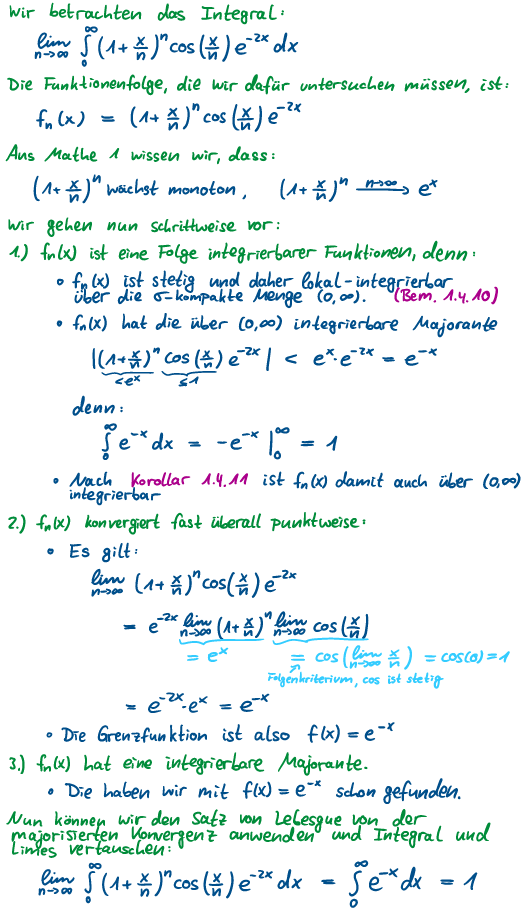 Wir betrachten das Integral:
lim n→∞ ∫₀^∞ (1+x/n)ⁿ cos(x/n) e^(-2x) dx
Die Funktionenfolge, die wir dafür untersuchen müssen, ist:
fₙ(x) = (1+x/n)ⁿ cos(x/n) e^(-2x)
Aus Mathe 1 wissen wir, dass:
(1+x/n)ⁿ wächst monoton, (1+x/n)ⁿ —n→∞→ eˣ
Wir gehen nun schrittweise vor:
1.) fₙ(x) ist eine Folge integrierbarer Funktionen, denn:
• fₙ(x) ist stetig und daher lokal-integrierbar
über die σ-kompakte Menge (0,∞). (Bem. 1.4.10)
• fₙ(x) hat die über (0,∞) integrierbare Majorante
|(1+x/n)ⁿ cos(x/n) e^(-2x)| < eˣ·e^(-2x) = e^(-x)
<eˣ ≤1
denn:
∫₀^∞ e^(-x) dx = -e^(-x) |₀^∞ = 1
• Nach Korollar 1.4.11 ist fₙ(x) damit auch über (0,∞)
integrierbar
2.) fₙ(x) konvergiert fast überall punktweise:
• Es gilt:
lim n→∞ (1+x/n)ⁿ cos(x/n) e^(-2x)
= e^(-2x) lim n→∞ (1+x/n)ⁿ lim n→∞ cos(x/n)
= eˣ = cos(lim n→∞ x/n) = cos(0) = 1
Folgenkriterium, cos ist stetig
= e^(-2x)·eˣ = e^(-x)
• Die Grenzfunktion ist also f(x) = e^(-x)
3.) fₙ(x) hat eine integrierbare Majorante.
• Die haben wir mit f(x) = e^(-x) schon gefunden.
Nun können wir den Satz von Lebesgue von der
majorisierten Konvergenz anwenden und Integral und
Limes vertauschen:
lim n→∞ ∫₀^∞ (1+x/n)ⁿ cos(x/n) e^(-2x) dx = ∫₀^∞ e^(-x) dx = 1